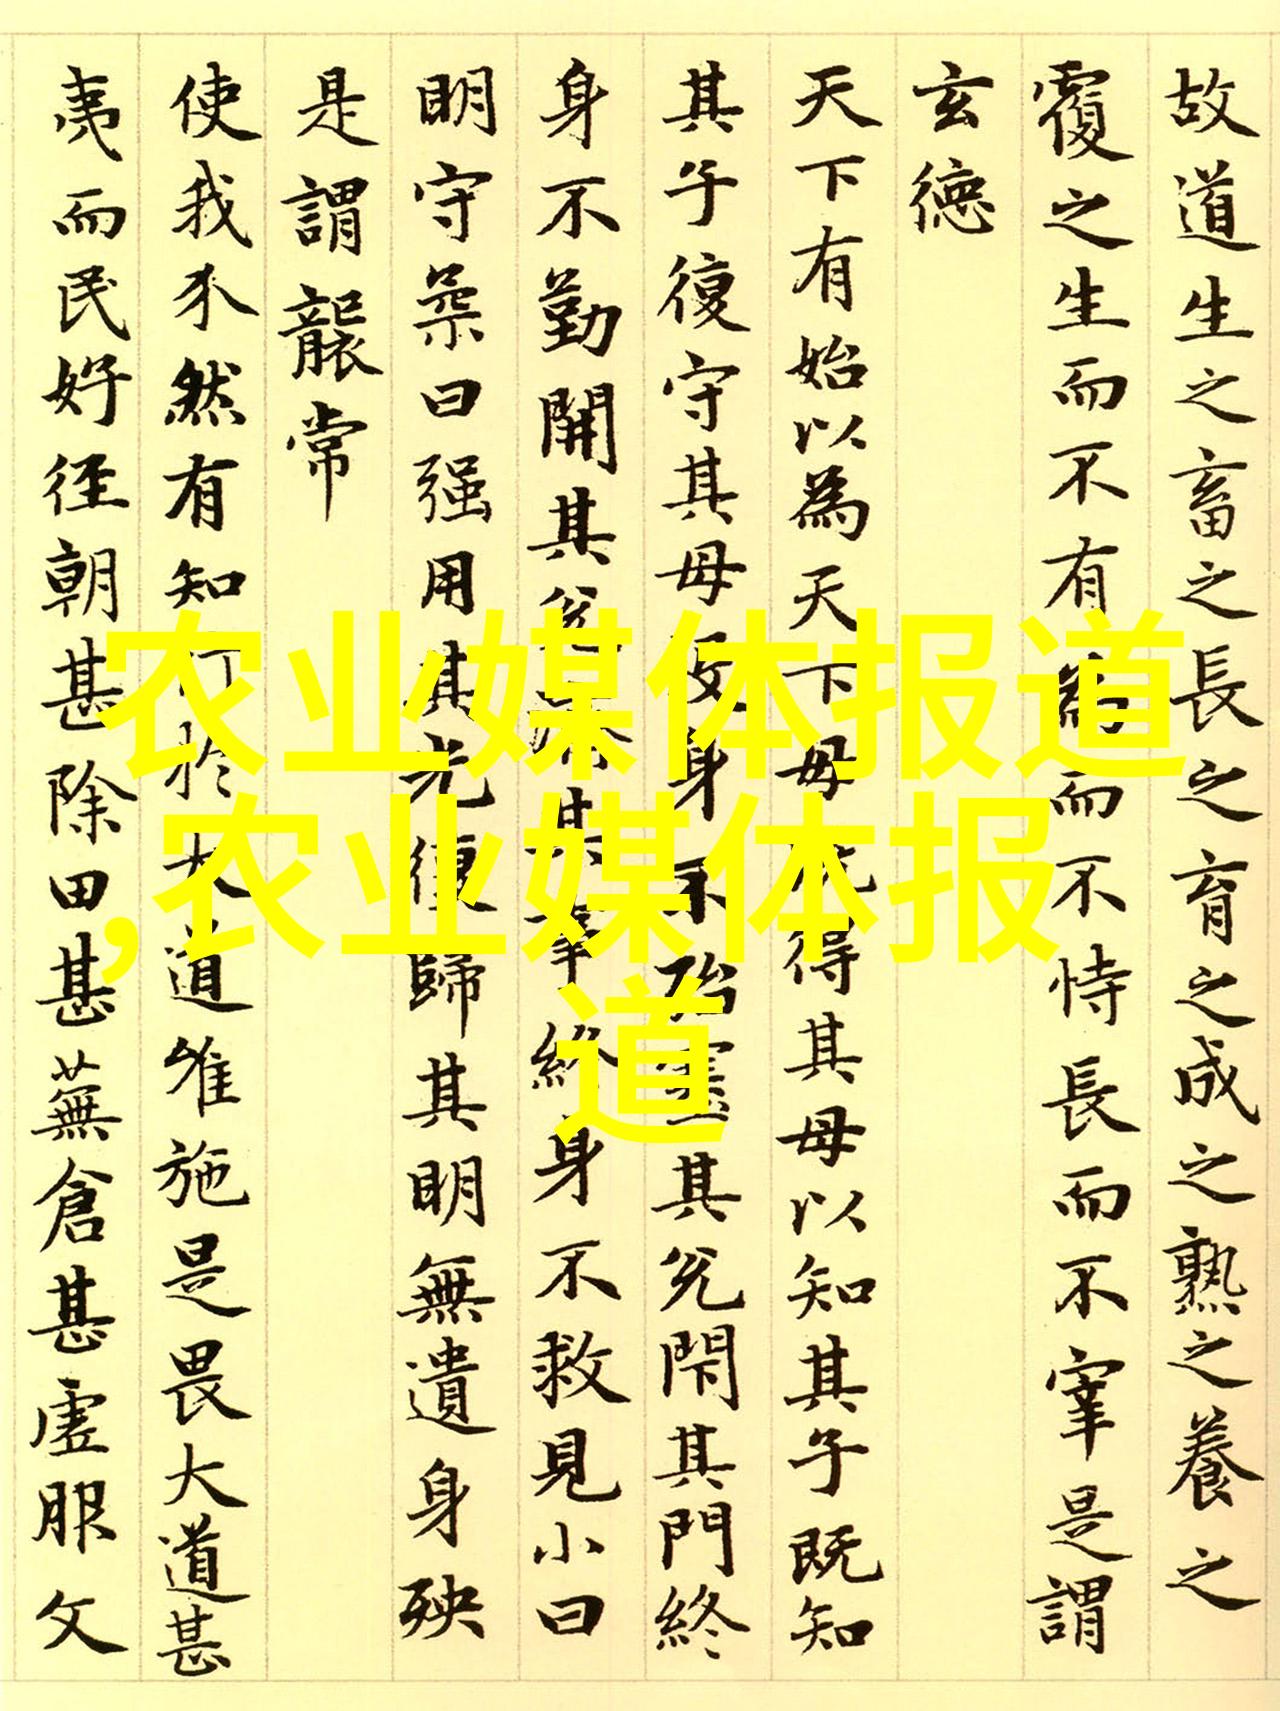 故道生之畜之長之育之成之熟之養之
覆之生而不有為而不恃長而不宰是謂
玄德
天下有始以為天下母既得其母以知其子既知
其子復守其母没身不殆塞其兌閉其門終
身不勤開其兌濟其事終身不救見小曰
明守柔曰强用其光復歸其明無遺身殃
是謂襲常
使我介然有知行於大道唯施是畏大道甚
夷而民好徑朝甚除田甚蕪倉甚虛服文
农业媒体报道
,农业媒体报
道